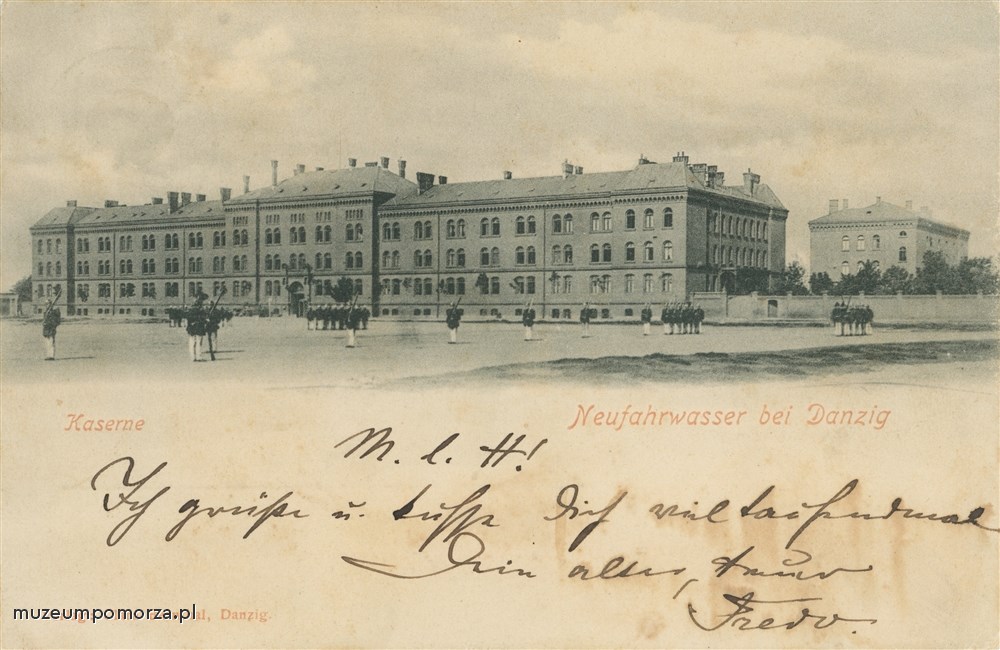 Kaserne
Neufahrwasser bei Danzig
M. l. H!
Ich grüße u. küsse Dich vieltausendmal
Dein alter, treuer
Fredo.
muzeumpomorza.pl
Danzig.